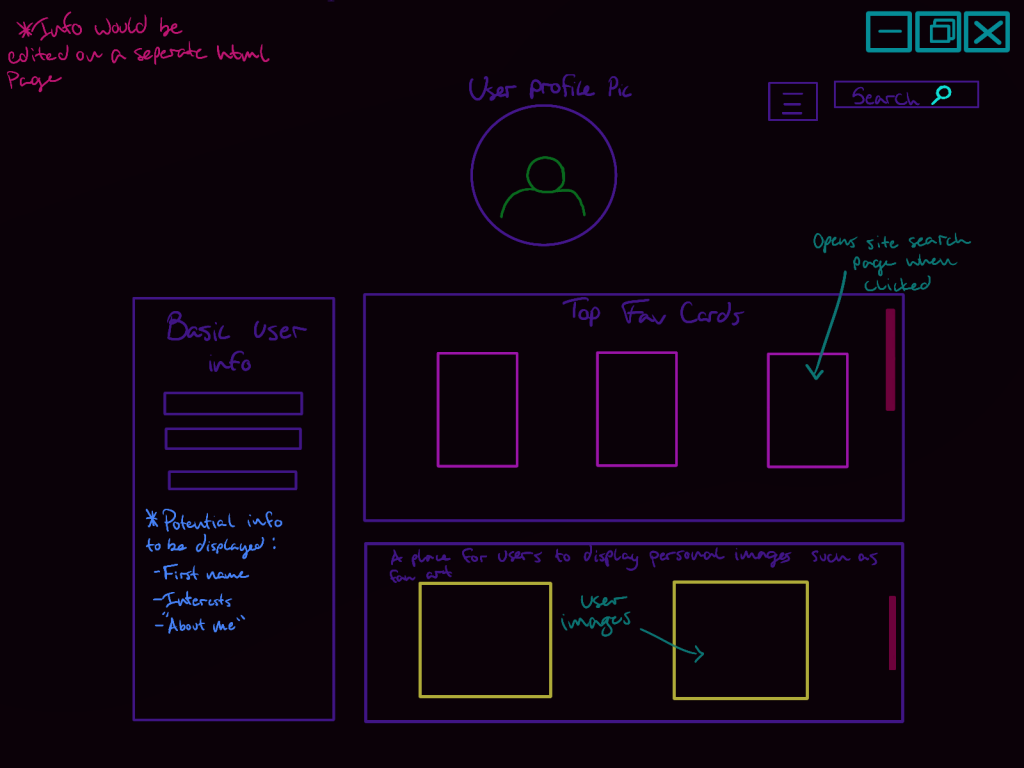 *Info would be
edited on a seperate html
Page
User profile Pic
Search
Opens site search
Page when
clicked
Basic user
info
*Potential info
to be displayed:
-First name
-Interests
-"About me"
Top Fav Cards
A place for users to display personal images such as
fan art
user
images